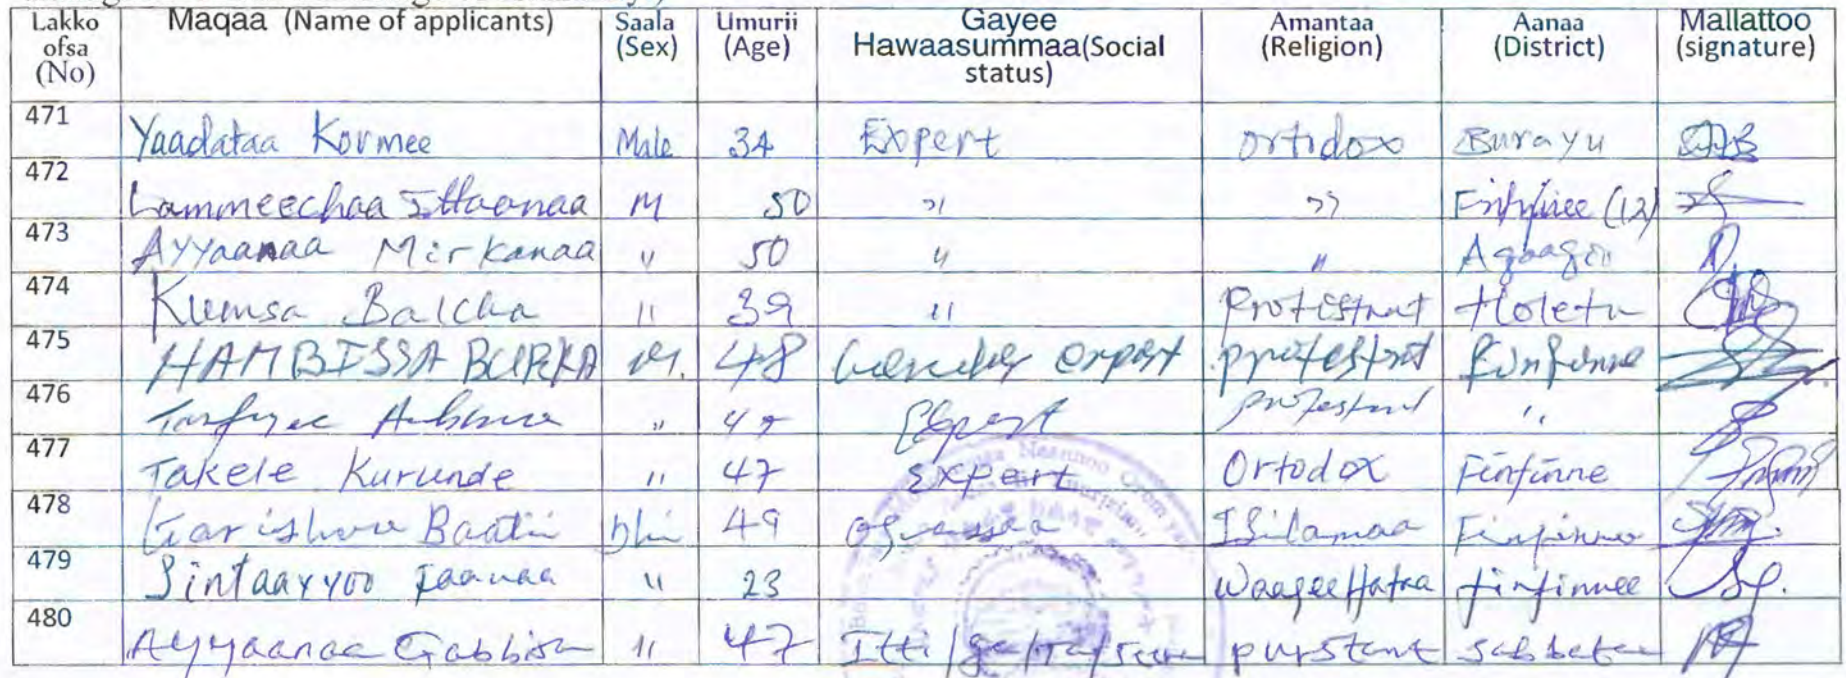 Lakko ofsa (No) Maqaa (Name of applicants) Saala (Sex) Umurii (Age) Gayee Hawaasummaa(Social status) Amantaa (Religion) Aanaa (District) Mallattoo (signature)
471 Yaadataa Kormee Male 34 Expert ortidox Burayu
472 Lammeechaa M 50 " " Finfinee (12)
473 Ayyaanaa Mirkanaa " 50 " "
474 Kumsa Balcha " 39 " Protestnat Holetu
475 HAMBISSA BURKA M. 48 expert protestnt Finfinne
476 " Expert protestant "
477 Takele Kurunde " 47 Expert Ortodox Finfinne
478 Baatii Dhi 49 Isilamaa Finfinne
479 Sintaayyoo " 23 Waaqeeffataa finfinnee
480 Ayyaanaa Gabbisa " 47 Itti purstant sabbataa